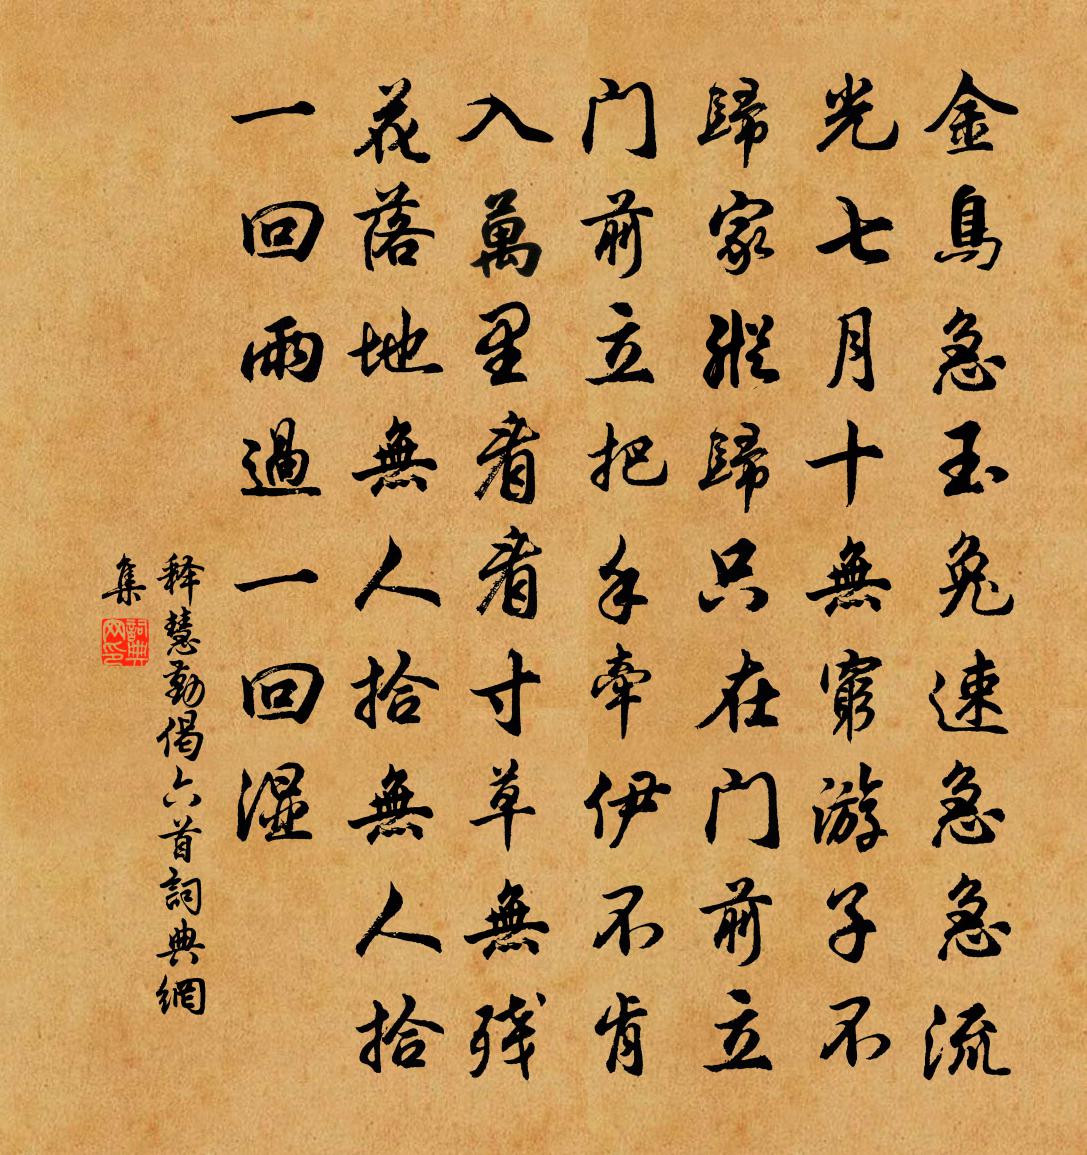 金烏急玉兔速急急流
光七月十無窮游子不
歸家縱歸只在门前立
门前立把手牽伊不肯
入萬里看看寸草無残
花落地無人拾無人拾
一回雨過一回湿
释慧勤偈六首詞典網
集
詞典网印